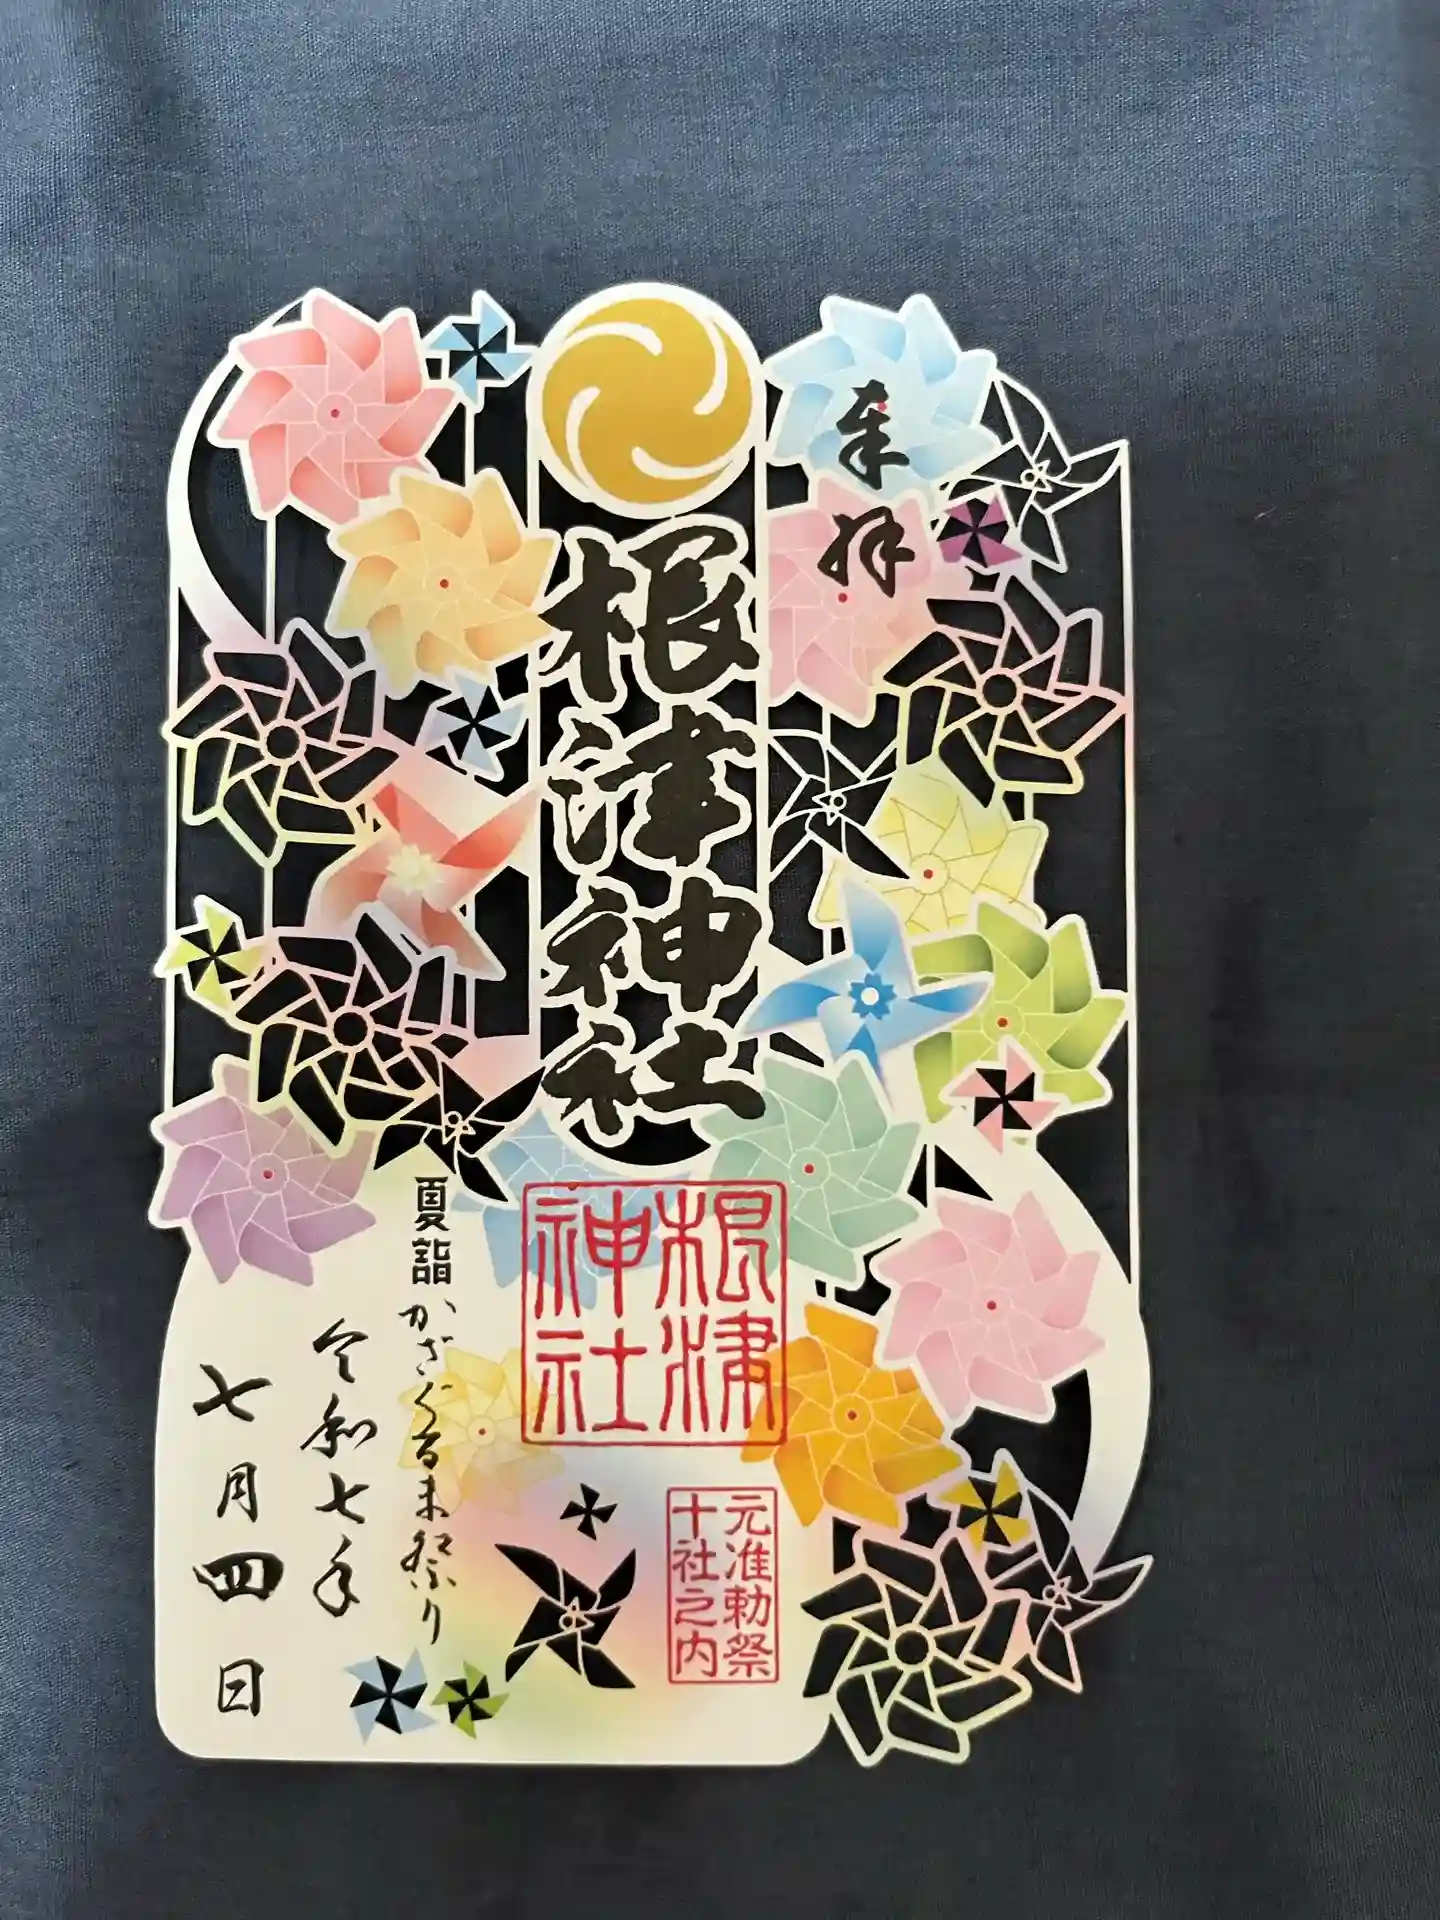 奉拝
根津神社
根津神社
元准勅祭
十社之内
夏詣
かざぐるま祭り
令和七年
七月四日